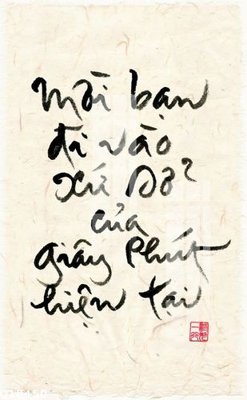 mời bạn
đi vào
xứ Sở
của
giây phút
hiện tại